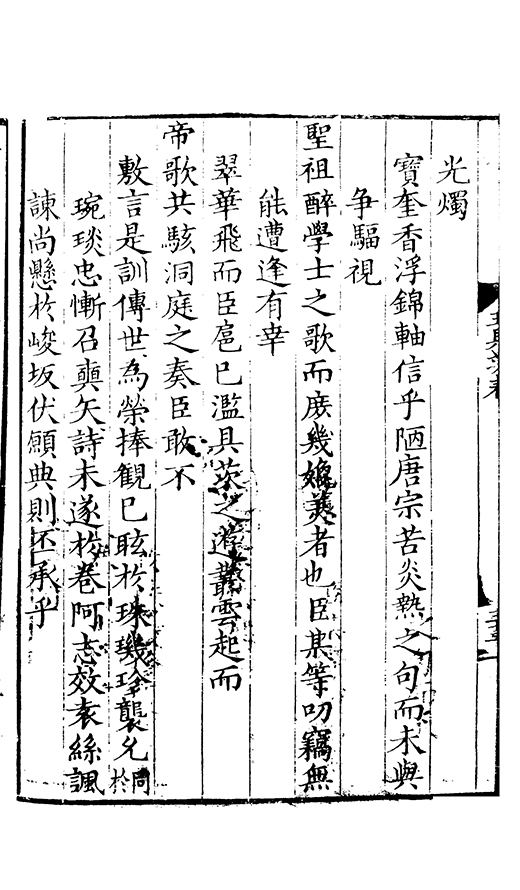 光燭
寶奎香浮錦軸信乎陋唐宗苦炎熱之句而未與
争驅視
聖祖醉學士之歌而庶幾媲美者也臣某等叨竊無
能遭逢有幸
翠華飛而臣扈已濫具茨之遊叢雲起而
帝歌共駭洞庭之奏臣敢不
敷言是訓傳世為榮捧観已眩於珠璣珍襲允同於
琬琰忠慚召奭矢詩未遂於卷阿志效袁絲諷
諫尚懸於峻坂伏願典則丕承乎